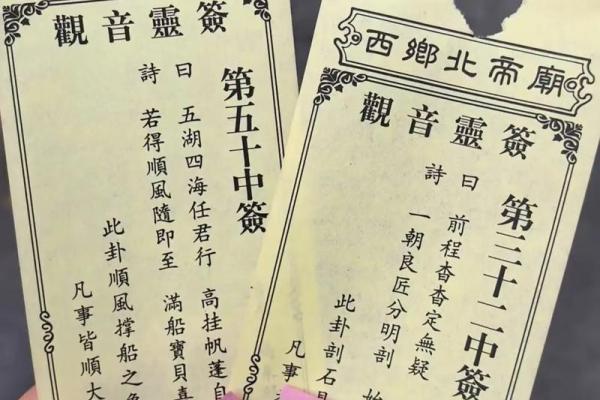 觀音靈簽
第五十中簽
曰 五湖四海任君行 高挂帆蓬自
詩 若得順風隨即至 滿船寶貝喜
此卦順風撑船之
凡事皆順大
西鄉北帝廟
觀音靈簽
第三十二中簽
曰 前程杳杳定無疑
詩 一朝良匠分明剖 始
此卦剖石見
凡事